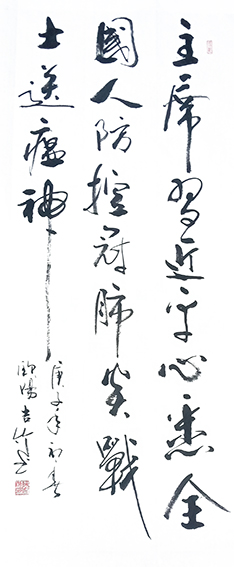 主席習近平心悉全
國人防控冠肺炎戰
士送瘟神
庚子年初春
歐陽吉竹書